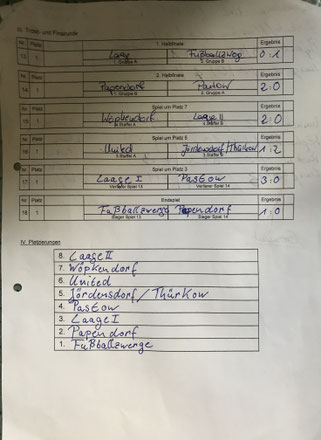 III. Trost- und Finalrunde
Nr. Platz 1. Halbfinale Ergebnis
13 1 Laage Fußballzwerge 0:1
1. Gruppe B 2. Gruppe B
Nr. Platz 2. Halbfinale Ergebnis
14 1 Papendorf Pastow 2:0
1. Gruppe B 2. Gruppe A
Nr. Platz Spiel um Platz 7 Ergebnis
15 1 Wöpkendorf Laage II 2:0
4. Staffel A 4. Staffel B
Nr. Platz Spiel um Platz 5 Ergebnis
16 1 United Jördensdorf/Thürkow 1:2
3. Staffel A 3. Staffel B
Nr. Platz Spiel um Platz 3 Ergebnis
17 1 Laage I Pastow 3:0
Verlierer Spiel 13 Verlierer Spiel 14
Nr. Platz Endspiel Ergebnis
18 1 Fußballzwerge Papendorf 1:0
Sieger Spiel 13 Sieger Spiel 14
IV. Platzierungen
8. Laage II
7. Wöpkendorf
6. United
5. Jördensdorf/Thürkow
4. Pastow
3. Laage I
2. Papendorf
1. Fußballzwerge